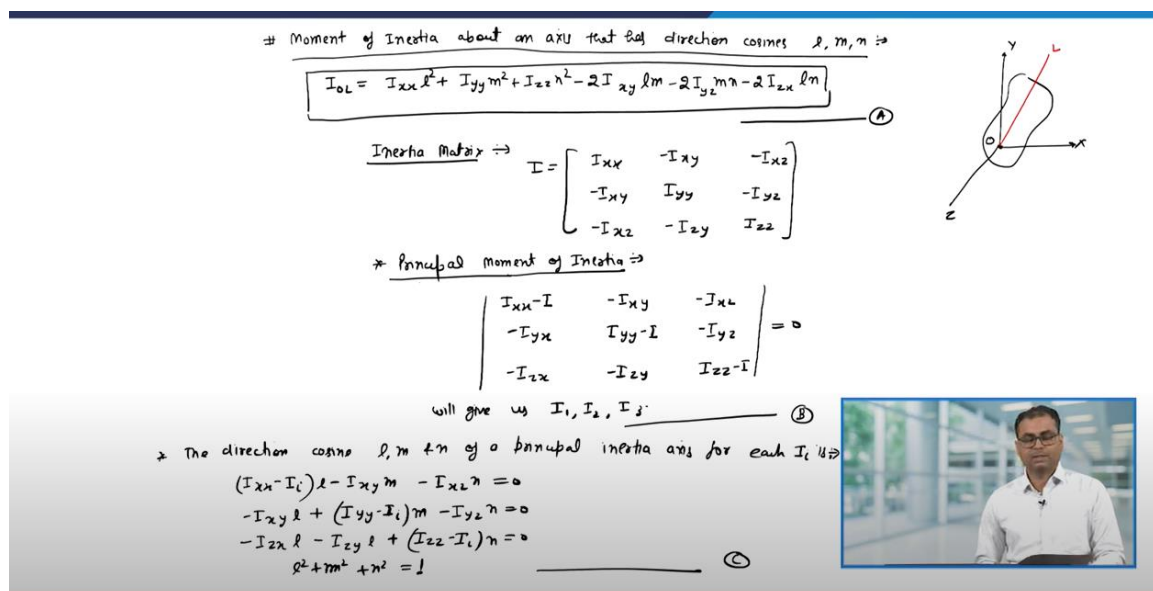 # Moment of Inertia about an axis that has direction cosines l, m, n ⇒
I_OL = I_xx l² + I_yy m² + I_zz n² - 2I_xy lm - 2I_yz mn - 2I_zx ln
(A)
Inertia Matrix ⇒
I = [ I_xx -I_xy -I_xz
-I_xy I_yy -I_yz
-I_xz -I_zy I_zz ]
* Principal moment of Inertia ⇒
| I_xx-I -I_xy -I_xz |
| -I_yx I_yy-I -I_yz | = 0
| -I_zx -I_zy I_zz-I |
will give us I_1, I_2, I_3. (B)
* The direction cosine l, m & n of a principal inertia axis for each I_i is ⇒
(I_xx-I_i)l - I_xy m - I_xz n = 0
-I_xy l + (I_yy-I_i)m - I_yz n = 0
-I_zx l - I_zy l + (I_zz-I_i)n = 0
l² + m² + n² = 1 (C)
Y
L
O
X
Z